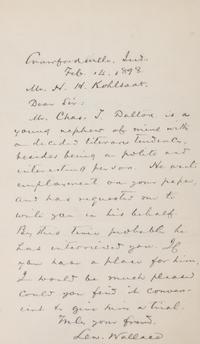 Crawfordsville, Ind.
Feb. 14, 1898
Mr. H. H. Kohlsaat.
Dear Sir:
Mr. Chas. T. Dalton is a
young nephew of mine with
a decided literary tendency,
besides being a polite and
interesting person. He wants
employment on your paper,
and has requested me to
write you in his behalf.
By this time probably he
has interviewed you. If
you have a place for him,
I would be much pleased
could you find it conven-
ient to give him a trial.
Truly, your friend,
Lew. Wallace